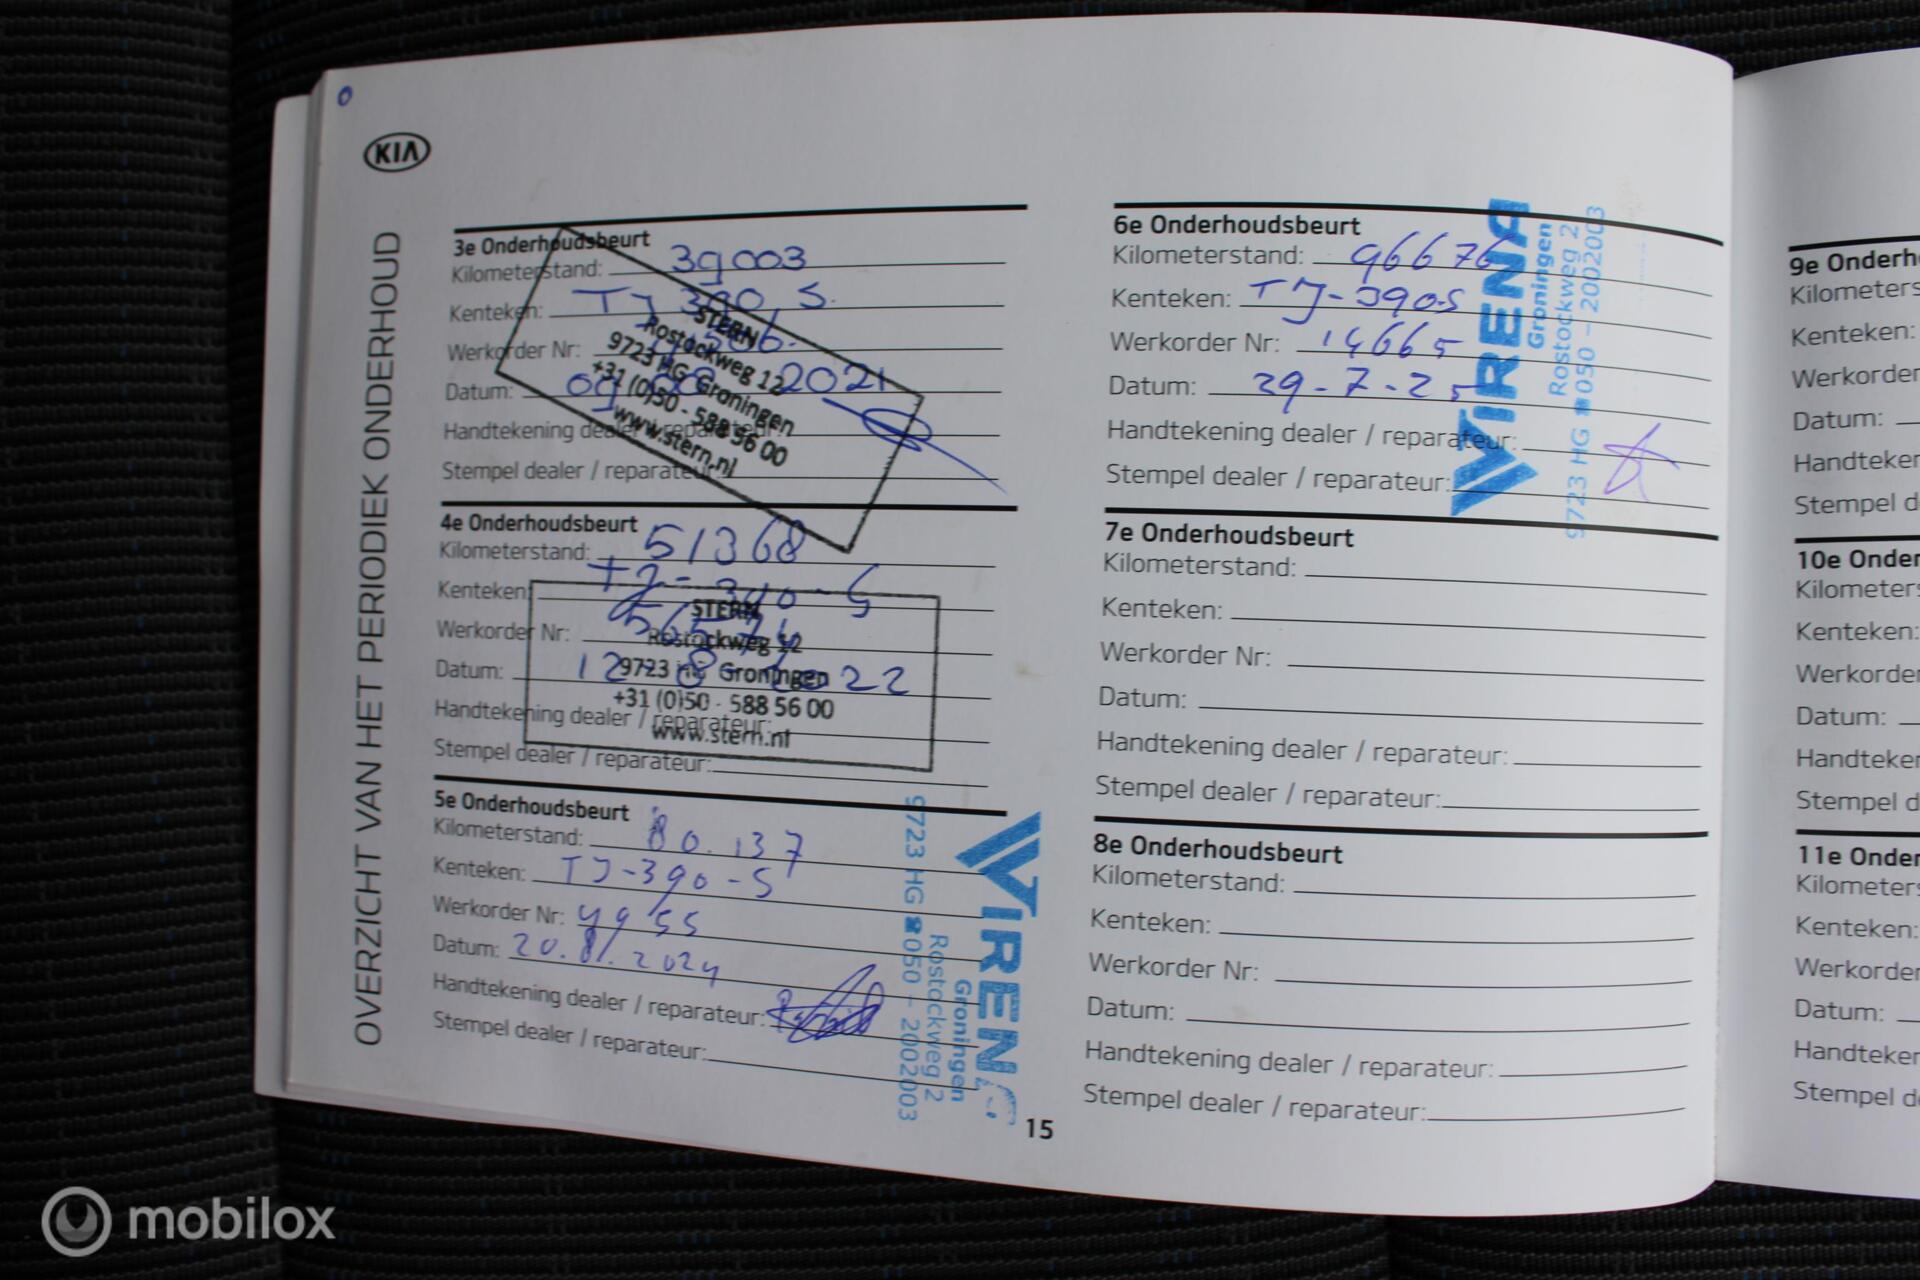 KIA
OVERZICHT VAN HET PERIODIEK ONDERHOUD
3e Onderhoudsbeurt
Kilometerstand: 39003
Kenteken: TJ 390 S.
Werkorder Nr:
Datum: 09 08 2021
Handtekening dealer / reparateur:
Stempel dealer / reparateur:
STERN
Rostockweg 12
9723 HG Groningen
+31 (0)50 - 588 56 00
www.stern.nl
4e Onderhoudsbeurt
Kilometerstand: 51368
Kenteken: TJ-390-S
Werkorder Nr:
Datum: 12-8-2022
Handtekening dealer / reparateur:
Stempel dealer / reparateur:
STERN
Rostockweg 12
9723 HG Groningen
+31 (0)50 - 588 56 00
www.stern.nl
5e Onderhoudsbeurt
Kilometerstand: 80.137
Kenteken: TJ-390-S
Werkorder Nr: 4955
Datum: 20.8.2024
Handtekening dealer / reparateur:
Stempel dealer / reparateur:
VIRENA
Groningen
Rostockweg 2
9723 HG ☎050 - 2002003
15
6e Onderhoudsbeurt
Kilometerstand: 96676
Kenteken: TJ-390-S
Werkorder Nr: 14665
Datum: 29-7-25
Handtekening dealer / reparateur:
Stempel dealer / reparateur:
VIRENA
Groningen
Rostockweg 2
9723 HG ☎050 - 2002003
7e Onderhoudsbeurt
Kilometerstand:
Kenteken:
Werkorder Nr:
Datum:
Handtekening dealer / reparateur:
Stempel dealer / reparateur:
8e Onderhoudsbeurt
Kilometerstand:
Kenteken:
Werkorder Nr:
Datum:
Handtekening dealer / reparateur:
Stempel dealer / reparateur:
9e Onderh
Kilometers
Kenteken:
Werkorder
Datum:
Handteken
Stempel d
10e Onder
Kilometers
Kenteken:
Werkorder
Datum:
Handteken
Stempel d
11e Onder
Kilometers
Kenteken:
Werkorder
Datum:
Handteken
Stempel d
mobilox